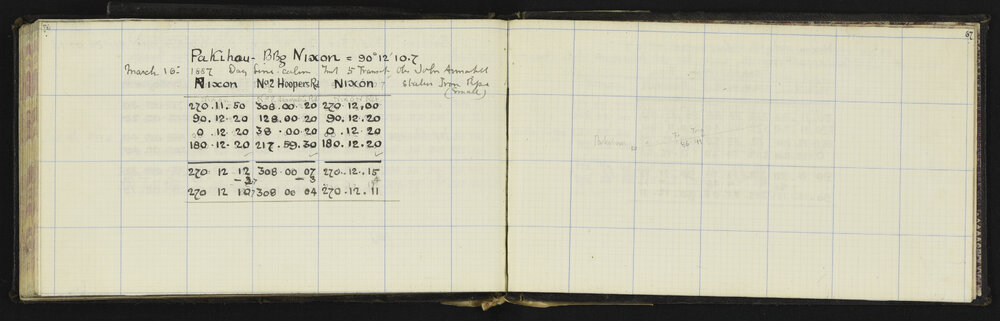 Pakihau - BBg Nixon = 90° 12' 10.7
March 16 1887 Day fine calm Inst 5" Transit Obs John
Station Iron Pipe
(small)
Nixon No 2 Hoopers Rd Nixon
270.11.50 308.00.20 270.12,00
90.12.20 128.00.20 90.12.20
0.12.20 38.00.20 0.12.20
180.12.20 217.59.30 180.12.20
270 12 12 308.00 07 270.12.15
- 3
270 12 10 308 00 04 270.12.11
67